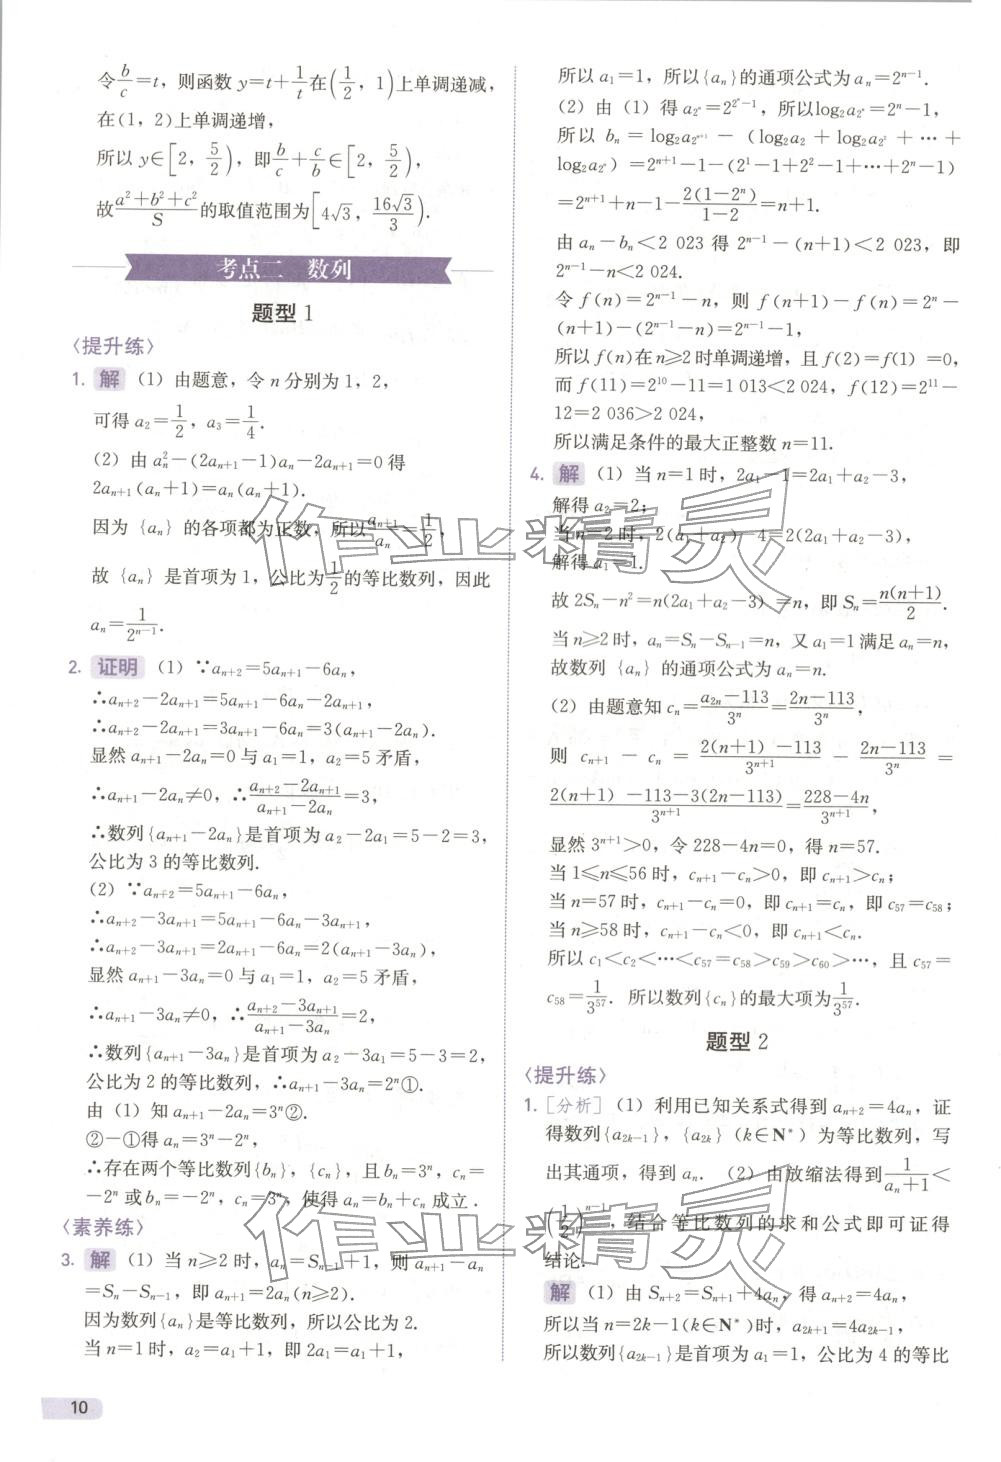 令b/c=t，则函数 y=t+1/t在(1/2，1)上单调递减，
在(1，2)上单调递增，
所以 y∈[2，5/2)，即b/c+c/b∈[2，5/2)，
故(a²+b²+c²)/S的取值范围为[4√3，16√3/3).
考点二 数列
题型 1
〈提升练〉
1. 解 (1) 由题意，令 n 分别为 1，2，
可得 a₂=1/2，a₃=1/4.
(2) 由 aₙ²−(2aₙ₊₁−1)aₙ−2aₙ₊₁=0 得
2aₙ₊₁(aₙ+1)=aₙ(aₙ+1).
因为 {aₙ} 的各项都为正数，所以aₙ₊₁/aₙ=1/2，
故 {aₙ} 是首项为 1，公比为1/2的等比数列，因此
aₙ=1/2ⁿ⁻¹.
2. 证明 (1) ∵aₙ₊₂=5aₙ₊₁−6aₙ，
∴aₙ₊₂−2aₙ₊₁=5aₙ₊₁−6aₙ−2aₙ₊₁，
∴aₙ₊₂−2aₙ₊₁=3aₙ₊₁−6aₙ=3(aₙ₊₁−2aₙ).
显然 aₙ₊₁−2aₙ=0 与 a₁=1，a₂=5 矛盾，
∴aₙ₊₁−2aₙ≠0，∴(aₙ₊₂−2aₙ₊₁)/(aₙ₊₁−2aₙ)=3，
∴数列{aₙ₊₁−2aₙ}是首项为 a₂−2a₁=5−2=3，
公比为 3 的等比数列.
(2) ∵aₙ₊₂=5aₙ₊₁−6aₙ，
∴aₙ₊₂−3aₙ₊₁=5aₙ₊₁−6aₙ−3aₙ₊₁，
∴aₙ₊₂−3aₙ₊₁=2aₙ₊₁−6aₙ=2(aₙ₊₁−3aₙ).
显然 aₙ₊₁−3aₙ=0 与 a₁=1，a₂=5 矛盾，
∴aₙ₊₁−3aₙ≠0，∴(aₙ₊₂−3aₙ₊₁)/(aₙ₊₁−3aₙ)=2，
∴数列{aₙ₊₁−3aₙ}是首项为 a₂−3a₁=5−3=2，
公比为 2 的等比数列，∴aₙ₊₁−3aₙ=2ⁿ①.
由 (1) 知 aₙ₊₁−2aₙ=3ⁿ②.
②−①得 aₙ=3ⁿ−2ⁿ，
∴存在两个等比数列{bₙ}，{cₙ}，且 bₙ=3ⁿ，cₙ=
−2ⁿ 或 bₙ=−2ⁿ，cₙ=3ⁿ，使得 aₙ=bₙ+cₙ 成立.
〈素养练〉
3. 解 (1) 当 n≥2 时，aₙ=Sₙ₋₁+1，则 aₙ₊₁−aₙ
=Sₙ−Sₙ₋₁，即 aₙ₊₁=2aₙ(n≥2).
因为数列{aₙ}是等比数列，所以公比为 2.
当 n=1 时，a₂=a₁+1，即 2a₁=a₁+1，
10
所以 a₁=1，所以{aₙ}的通项公式为 aₙ=2ⁿ⁻¹.
(2) 由 (1) 得 a_{2ⁿ}=2^{2ⁿ−1}，所以log₂a_{2ⁿ}=2ⁿ−1，
所以 bₙ=log₂a_{2ⁿ⁺¹} − (log₂a₂+log₂a_{2²}+⋯+
log₂a_{2ⁿ})=2ⁿ⁺¹−1−(2¹−1+2²−1+⋯+2ⁿ−1)
=2ⁿ⁺¹+n−1−2(1−2ⁿ)/(1−2)=n+1.
由 aₙ−bₙ<2 023 得 2ⁿ⁻¹−(n+1)<2 023，即
2ⁿ⁻¹−n<2 024.
令 f(n)=2ⁿ⁻¹−n，则 f(n+1)−f(n)=2ⁿ−
(n+1)−(2ⁿ⁻¹−n)=2ⁿ⁻¹−1，
所以 f(n)在 n≥2 时单调递增，且 f(2)=f(1)=0，
而 f(11)=2¹⁰−11=1 013<2 024，f(12)=2¹¹−
12=2 036>2 024，
所以满足条件的最大正整数 n=11.
4. 解 (1) 当 n=1 时，2a₁−1=2a₁+a₂−3，
解得 a₂=2；
当 n=2 时，2(a₁+a₂)−4=2(2a₁+a₂−3)，
解得 a₁=1.
故 2Sₙ−n²=n(2a₁+a₂−3)=n，即 Sₙ=n(n+1)/2.
当 n≥2 时，aₙ=Sₙ−Sₙ₋₁=n，又 a₁=1 满足 aₙ=n，
故数列 {aₙ} 的通项公式为 aₙ=n.
(2) 由题意知 cₙ=(a₂ₙ−113)/3ⁿ=(2n−113)/3ⁿ，
则 cₙ₊₁ − cₙ = (2(n+1)−113)/3ⁿ⁺¹ − (2n−113)/3ⁿ =
(2(n+1)−113−3(2n−113))/3ⁿ⁺¹=(228−4n)/3ⁿ⁺¹，
显然 3ⁿ⁺¹>0，令 228−4n=0，得 n=57.
当 1≤n≤56 时，cₙ₊₁−cₙ>0，即 cₙ₊₁>cₙ；
当 n=57 时，cₙ₊₁−cₙ=0，即 cₙ₊₁=cₙ，即 c₅₇=c₅₈；
当 n≥58 时，cₙ₊₁−cₙ<0，即 cₙ₊₁<cₙ.
所以 c₁<c₂<⋯<c₅₇=c₅₈>c₅₉>c₆₀>⋯，且 c₅₇=
c₅₈=1/3⁵⁷. 所以数列{cₙ}的最大项为1/3⁵⁷.
题型 2
〈提升练〉
1. [分析] (1) 利用已知关系式得到 aₙ₊₂=4aₙ，证
得数列{a₂ₖ₋₁}，{a₂ₖ}(k∈N*) 为等比数列，写
出其通项，得到 aₙ. (2) 由放缩法得到1/(aₙ+1)<
(1/2)ⁿ⁻¹，结合等比数列的求和公式即可证得
结论.
解 (1) 由 Sₙ₊₂=Sₙ₊₁+4aₙ，得 aₙ₊₂=4aₙ，
所以当 n=2k−1(k∈N*)时，a₂ₖ₊₁=4a₂ₖ₋₁，
所以数列{a₂ₖ₋₁}是首项为 a₁=1，公比为 4 的等比
作业精灵
作业精灵